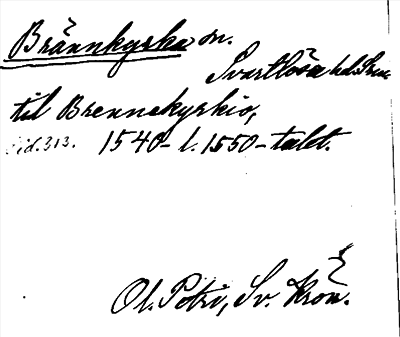 Brännkyrka sn.
Svartlösa hd. Srm.
til Brennekyrkio,
Sid. 313. 1540- l. 1550-talet.
Ol. Petri, Sv. Krön.